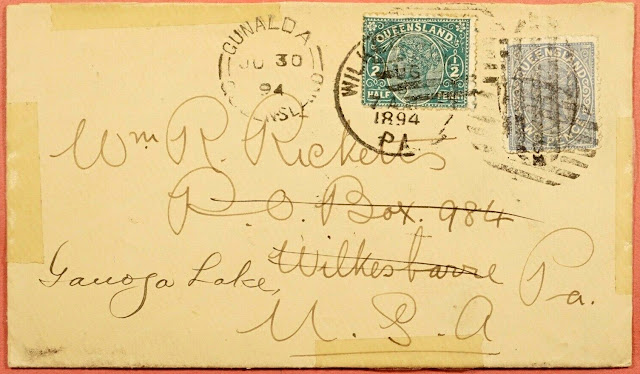 GUNALDA
JU 30
94
QUEENSLAND
1/2 1/2
HALF PENNY
WILK
AUG
1894
PA
QUEENSLAND
Wm R. Ricketts
P. O. Box. 984
Wilkesbarre Pa.
Ganoga Lake,
U. S. A